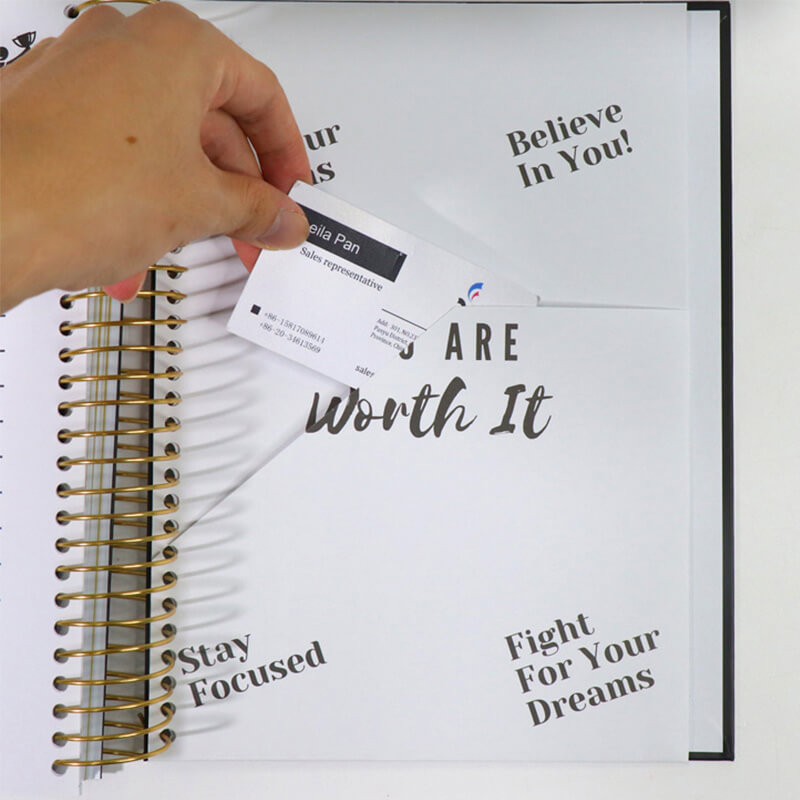 Believe
In You!
eila Pan
Sales representative
+86-15817089614
+86-20-34613569
Add: 301, NO.23
Panyu District
Province, Chin
sales
ARE
Worth It
Stay
Focused
Fight
For Your
Dreams